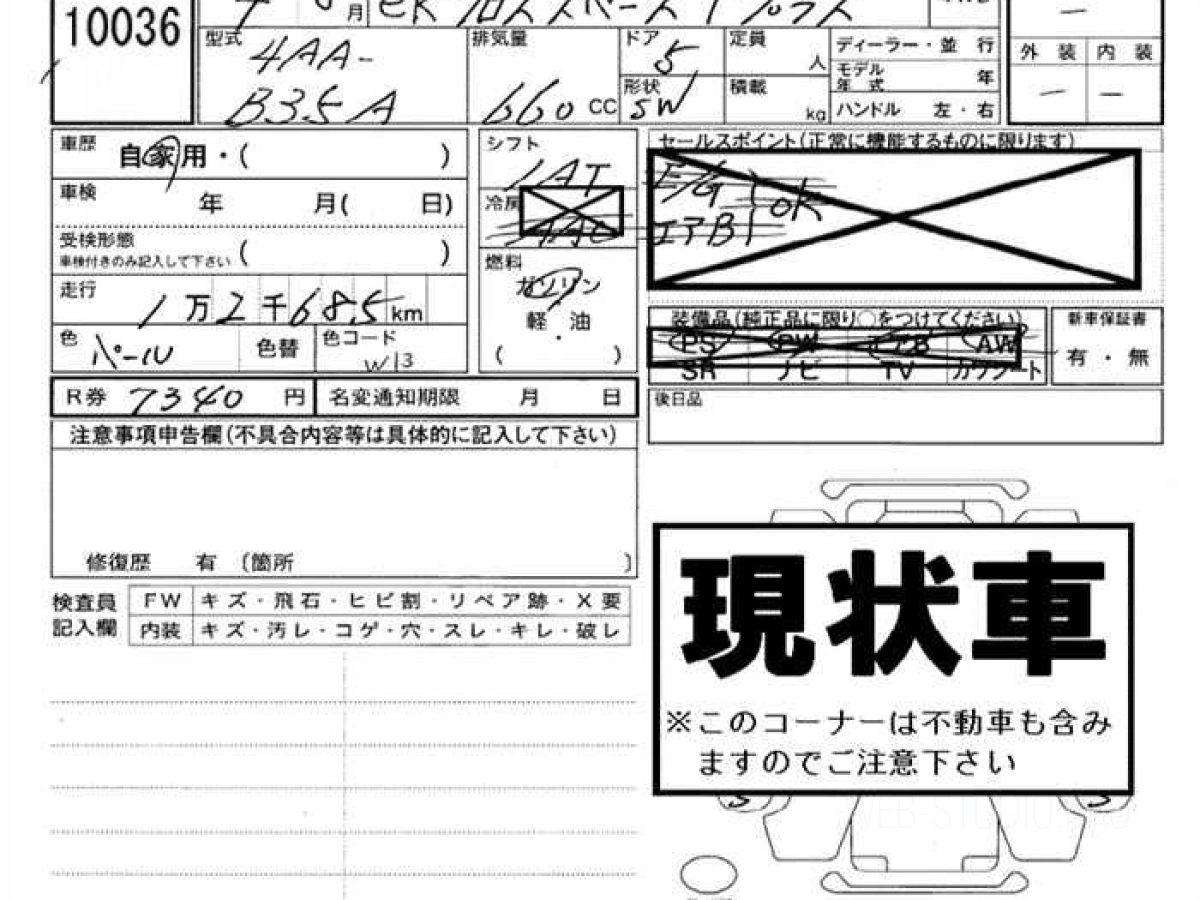 10036
月 eKクロススペース T プラス
型式 4AA-
B35A
排気量
660 CC
ドア 5
形状 SW
定員
人
積載
kg
ディーラー・並 行
モデル
年 式
年
ハンドル 左・右
外 装 内 装
— —
車歴 自家用・( )
車検 年 月( 日)
受検形態
車検付きのみ記入して下さい ( )
走行 1万2千685km
色 パール 色替 色コード W13
シフト
IAT
冷房
AAC
燃料
ガソリン
軽・油
( )
セールスポイント(正常に機能するものに限ります)
E/G
エアB
OK
装備品(純正品に限り○をつけてください)
PS PW エアB AW
SR ナビ TV カワシート
新車保証書
有・無
後日品
R券 7340 円 名変通知期限 月 日
注意事項申告欄(不具合内容等は具体的に記入して下さい)
修復歴 有 〔箇所 〕
検査員
記入欄
FW キズ・飛石・ヒビ割・リペア跡・X要
内装 キズ・汚レ・コゲ・穴・スレ・キレ・破レ
現状車
※このコーナーは不動車も含み
ますのでご注意下さい